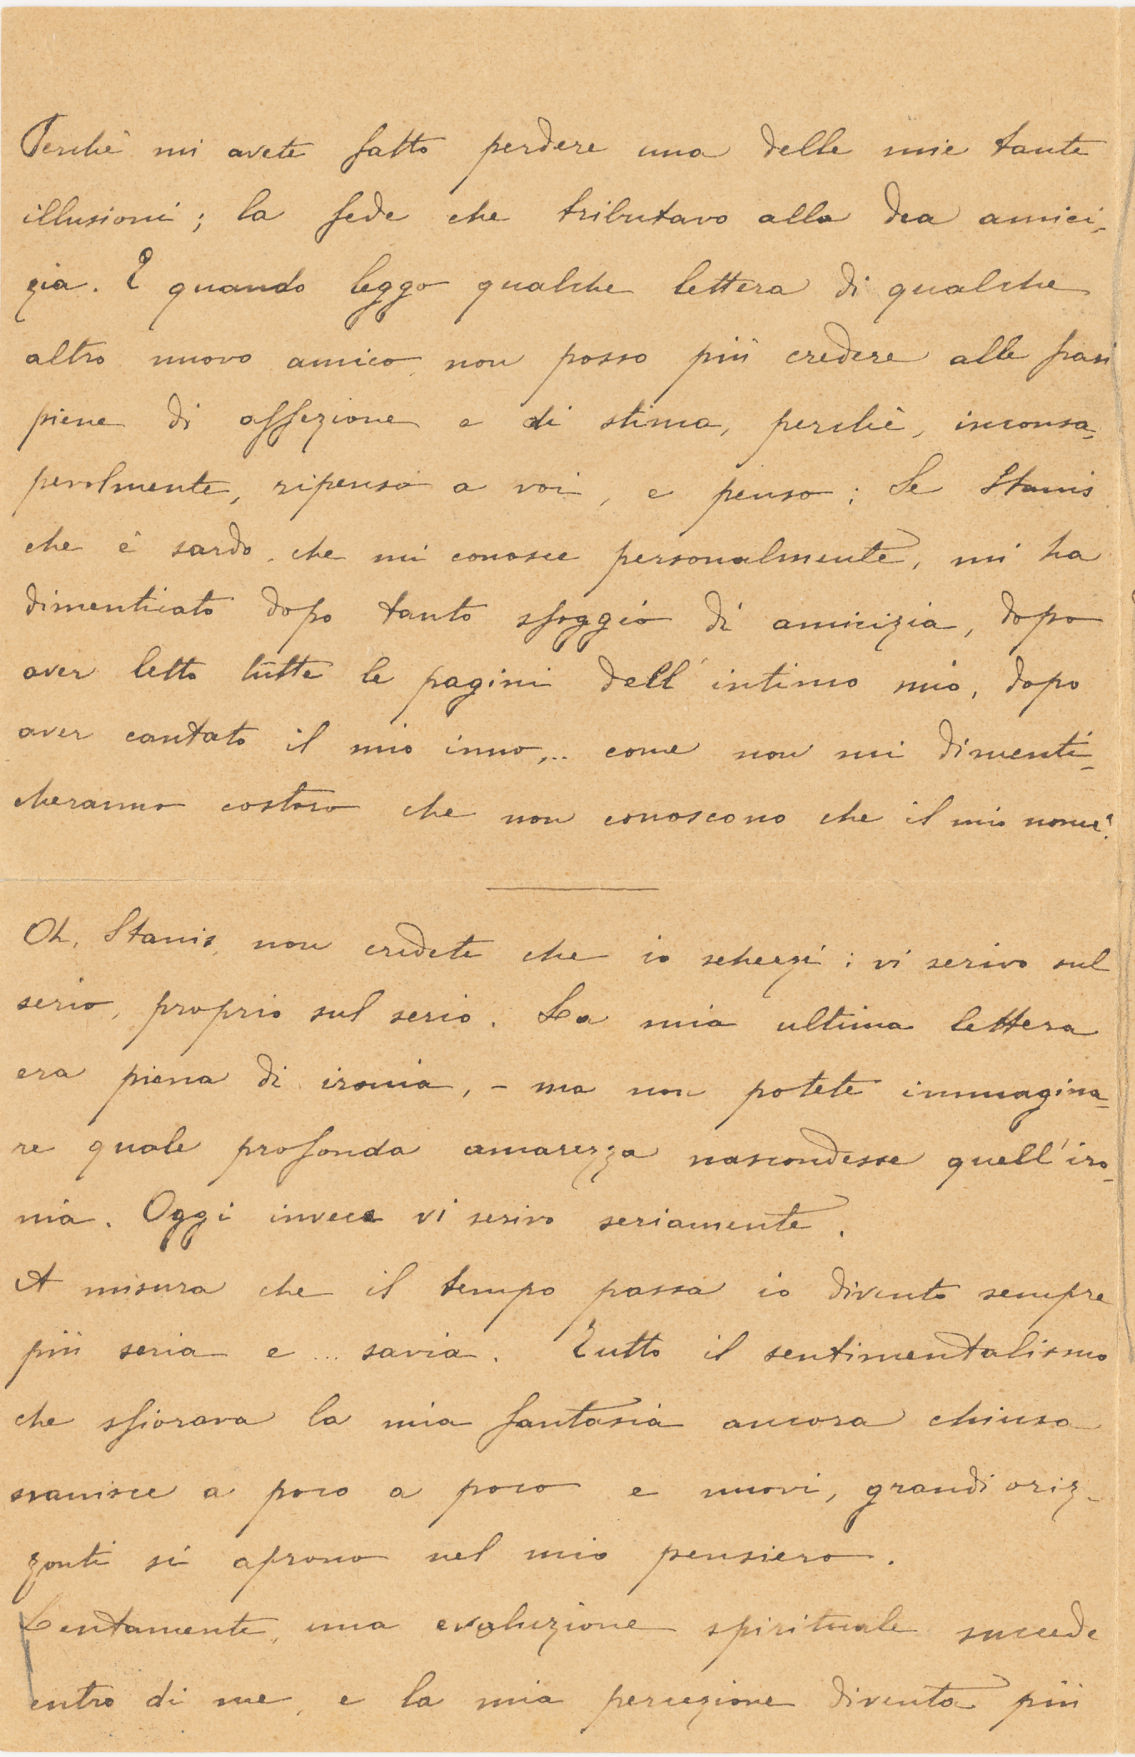 Perchè mi avete fatto perdere una delle mie tante
illusioni; la fede che tributavo alla dea amici-
zia. E quando leggo qualche lettera di qualche
altro nuovo amico non posso più credere alle frasi
piene di affezione e di stima, perchè, inconsa-
pevolmente, ripenso a voi, e penso: Se Stanis
che è sardo, che mi conosce personalmente, mi ha
dimenticato dopo tanto sfoggio di amicizia, dopo
aver letto tutte le pagini dell'intimo mio, dopo
aver cantato il mio inno,.. come non mi dimenti-
cheranno costoro che non conoscono che il mio nome?
Oh, Stanis, non credete che io scherzi: vi scrivo sul
serio, proprio sul serio. La mia ultima lettera
era piena di ironia, - ma non potete immagina-
re quale profonda amarezza nascondesse quell'iro-
nia. Oggi invece vi scrivo seriamente.
A misura che il tempo passa io divento sempre
più seria e ... savia. Tutto il sentimentalismo
che sfiorava la mia fantasia ancora chiusa
svanisce a poco a poco e nuovi, grandi oriz-
zonti si aprono nel mio pensiero.
Lentamente, una evoluzione spirituale succede
entro di me, e la mia percezione diventa più